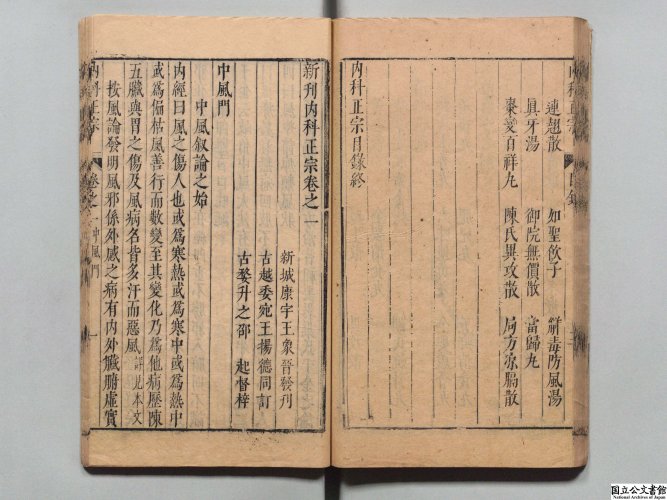 內科正宗 目錄
連翹散 如聖飲子 解毒防風湯
眞牙湯 御院無價散 當歸丸
棗變百祥丸 陳氏異攻散 局方凉膈散
內科正宗目錄終
新刊內科正宗卷之一
新城康宇王象晉發刊
古越委宛王揚德同訂
古婺升之邵 起督梓
中風門
中風叙論之始
內經曰風之傷人也或爲寒熱或爲寒中或爲熱中
或爲偏枯風善行而數變至其變化乃爲他病歷陳
五臟與胃之傷及風病名皆多汗而惡風詳見本文
按風論發明風邪係外感之病有內外臟腑虛實
內科正宗 卷之一 中風門 一
国立公文書館
National Archives of Japan